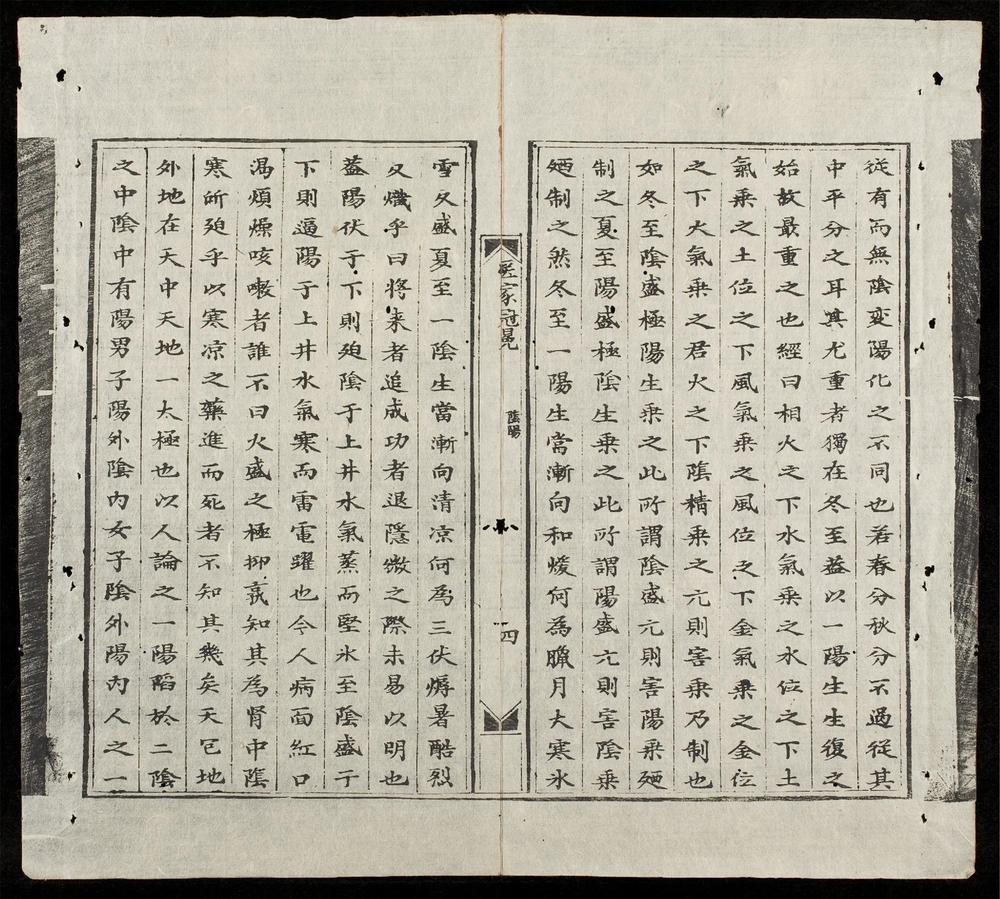 従有而無陰変陽化之不同也若春分秋分不過従其
中平分之耳其尤重者獨在冬至葢以一陽生生復之
始故最重之也經曰相火之下水氣乗之水位之下土
氣乗之土位之下風氣乗之風位之下金氣乗之金位
之下火氣乗之君火之下陰精乗之亢則害乗乃制也
如冬至陰盛極陽生乗之此所謂陰盛亢則害陽乗廼
制之夏至陽盛極陰生乗之此所謂陽盛亢則害陰乗
廼制之然冬至一陽生當漸向和煖何為臘月大寒氷
醫家冠冕
陰陽
四
雪又盛夏至一陰生當漸向清凉何為三伏溽暑酷烈
又熾乎曰将来者追成功者退隱微之際未易以明也
葢陽伏于下則廹陰于上井水氣蒸而堅氷至陰盛于
下則逼陽于上井水氣寒而雷電躍也今人病面紅口
渴煩燥咳嗽者誰不曰火盛之極抑孰知其為腎中陰
寒所廹乎以寒凉之藥進而死者不知其幾矣天包地
外地在天中天地一太極也以人論之一陽陷於二陰
之中陰中有陽男子陽外陰内女子陰外陽内人之一